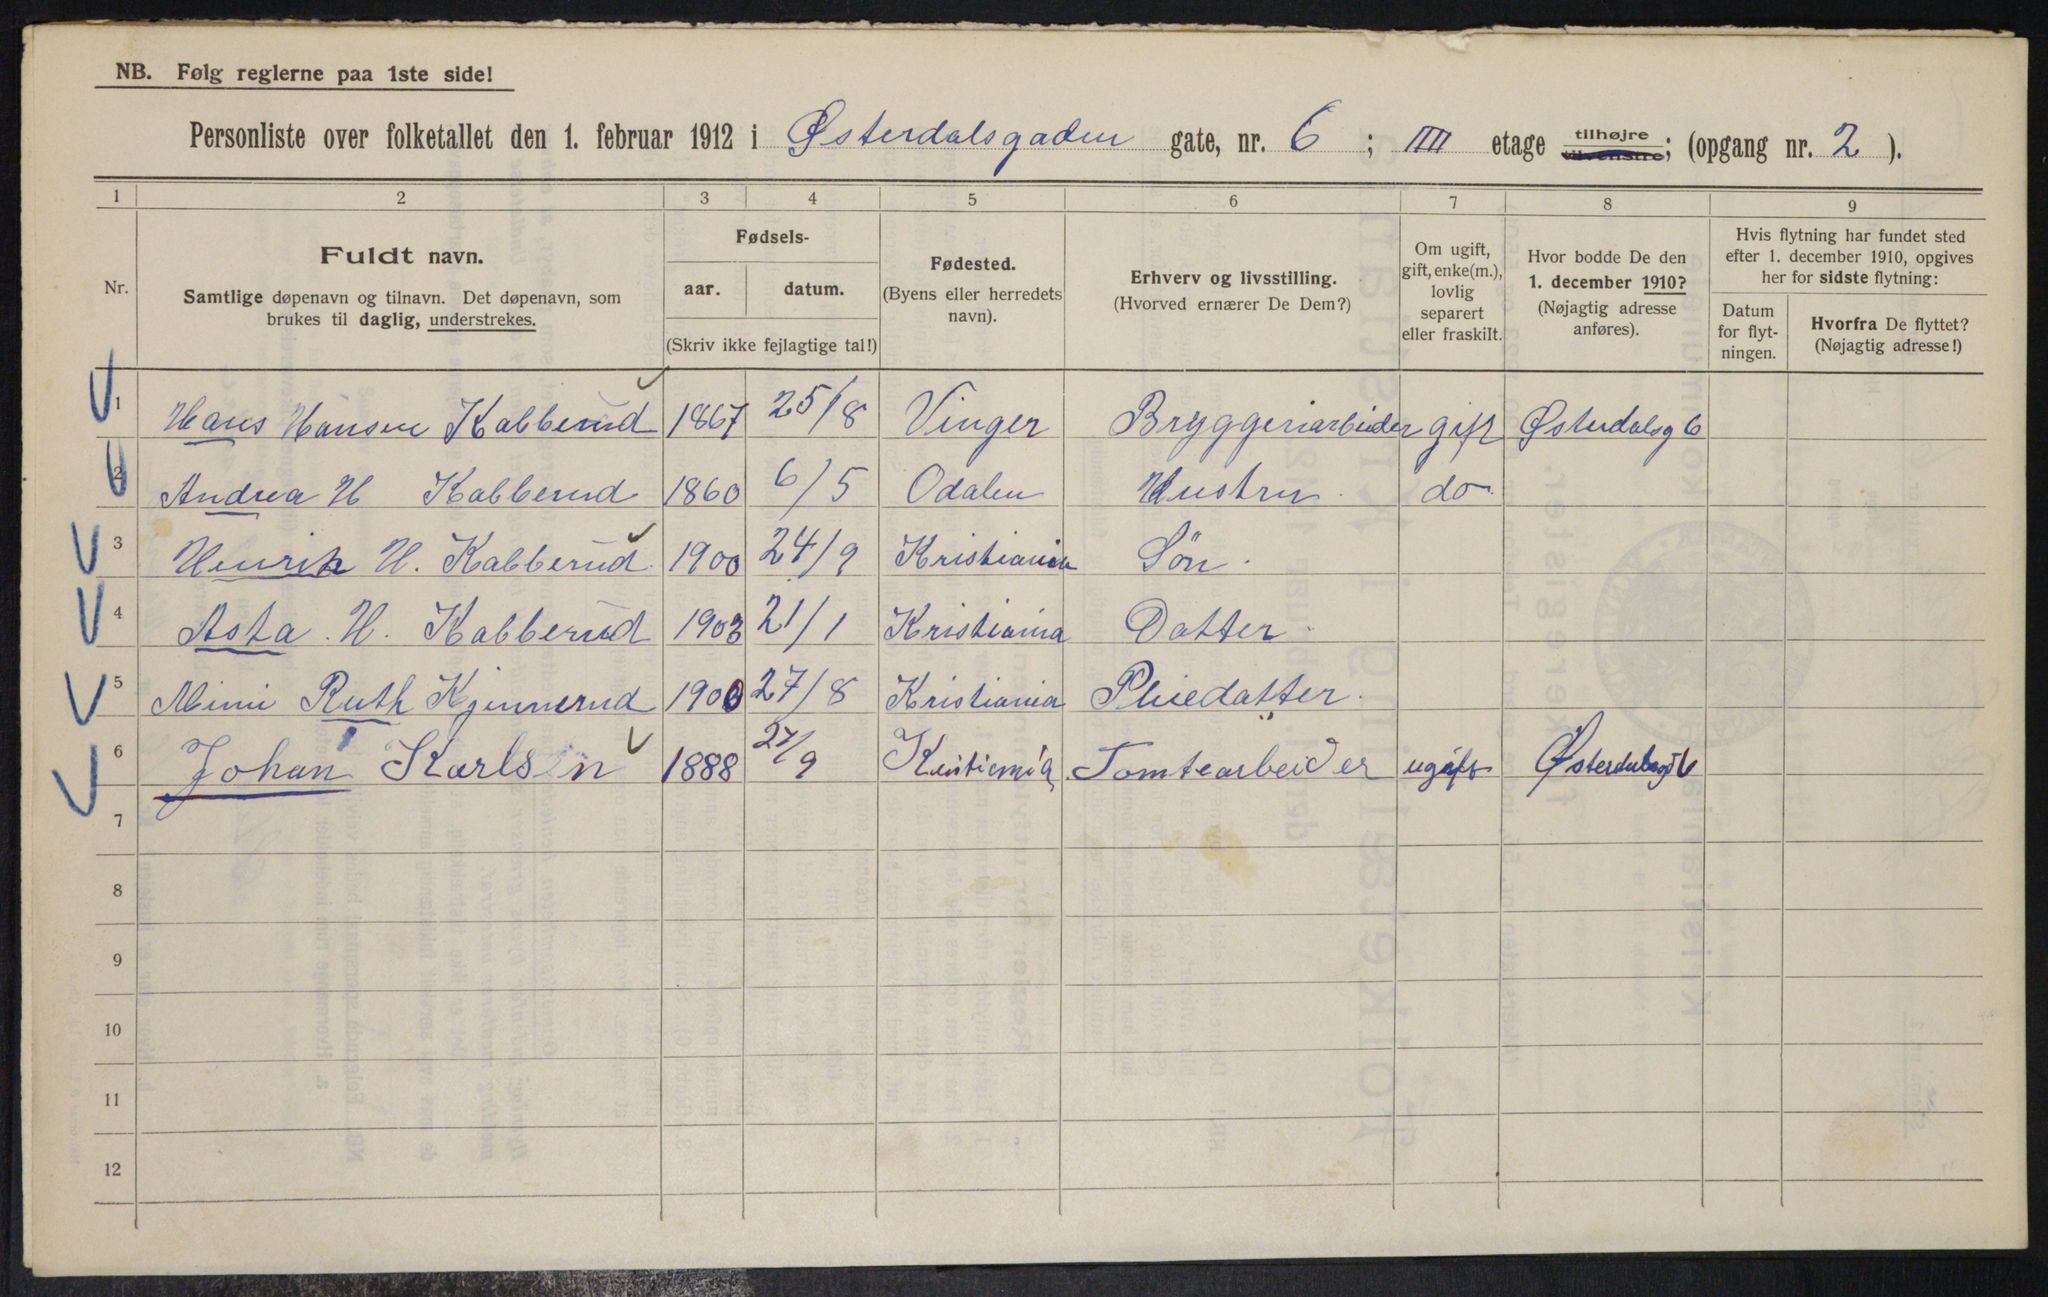 NB. Følg reglerne paa 1ste side!
Personliste over folketallet den 1. februar 1912 i Østerdalsgaden gate, nr. 6 ; IIII etage tilhøjre tilvenstre; (opgang nr. 2 ).
1 2 3 4 5 6 7 8 9
Nr.
Fuldt navn.
Samtlige døpenavn og tilnavn. Det døpenavn, som
brukes til daglig, understrekes.
Fødsels-
aar. datum.
(Skriv ikke fejlagtige tal!)
Fødested.
(Byens eller herredets
navn).
Erhverv og livsstilling.
(Hvorved ernærer De Dem?)
Om ugift,
gift, enke(m.),
lovlig
separert
eller fraskilt.
Hvor bodde De den
1. december 1910?
(Nøjagtig adresse
anføres).
Hvis flytning har fundet sted
efter 1. december 1910, opgives
her for sidste flytning:
Datum
for flyt-
ningen.
Hvorfra De flyttet?
(Nøjagtig adresse!)
1 Hans Hansen Kabberud 1867 25/8 Vinger Bryggeriarbeider gift Østerdalsg 6
2 Andrea H Kabberud 1860 6/5 Odalen Hustru. do.
3 Henrik H. Kabberud. 1900 24/9 Kristiania Søn.
4 Asta. H. Kabberud 1903 21/1 Kristiania Datter.
5 Mimi Ruth Kjennerud 1900 27/8 Kristiania Pleiedatter.
6 Johan Karlsen 1888 27/9 Kristiania Tomtearbeider ugift Østerdalsgt 6
7
8
9
10
11
12